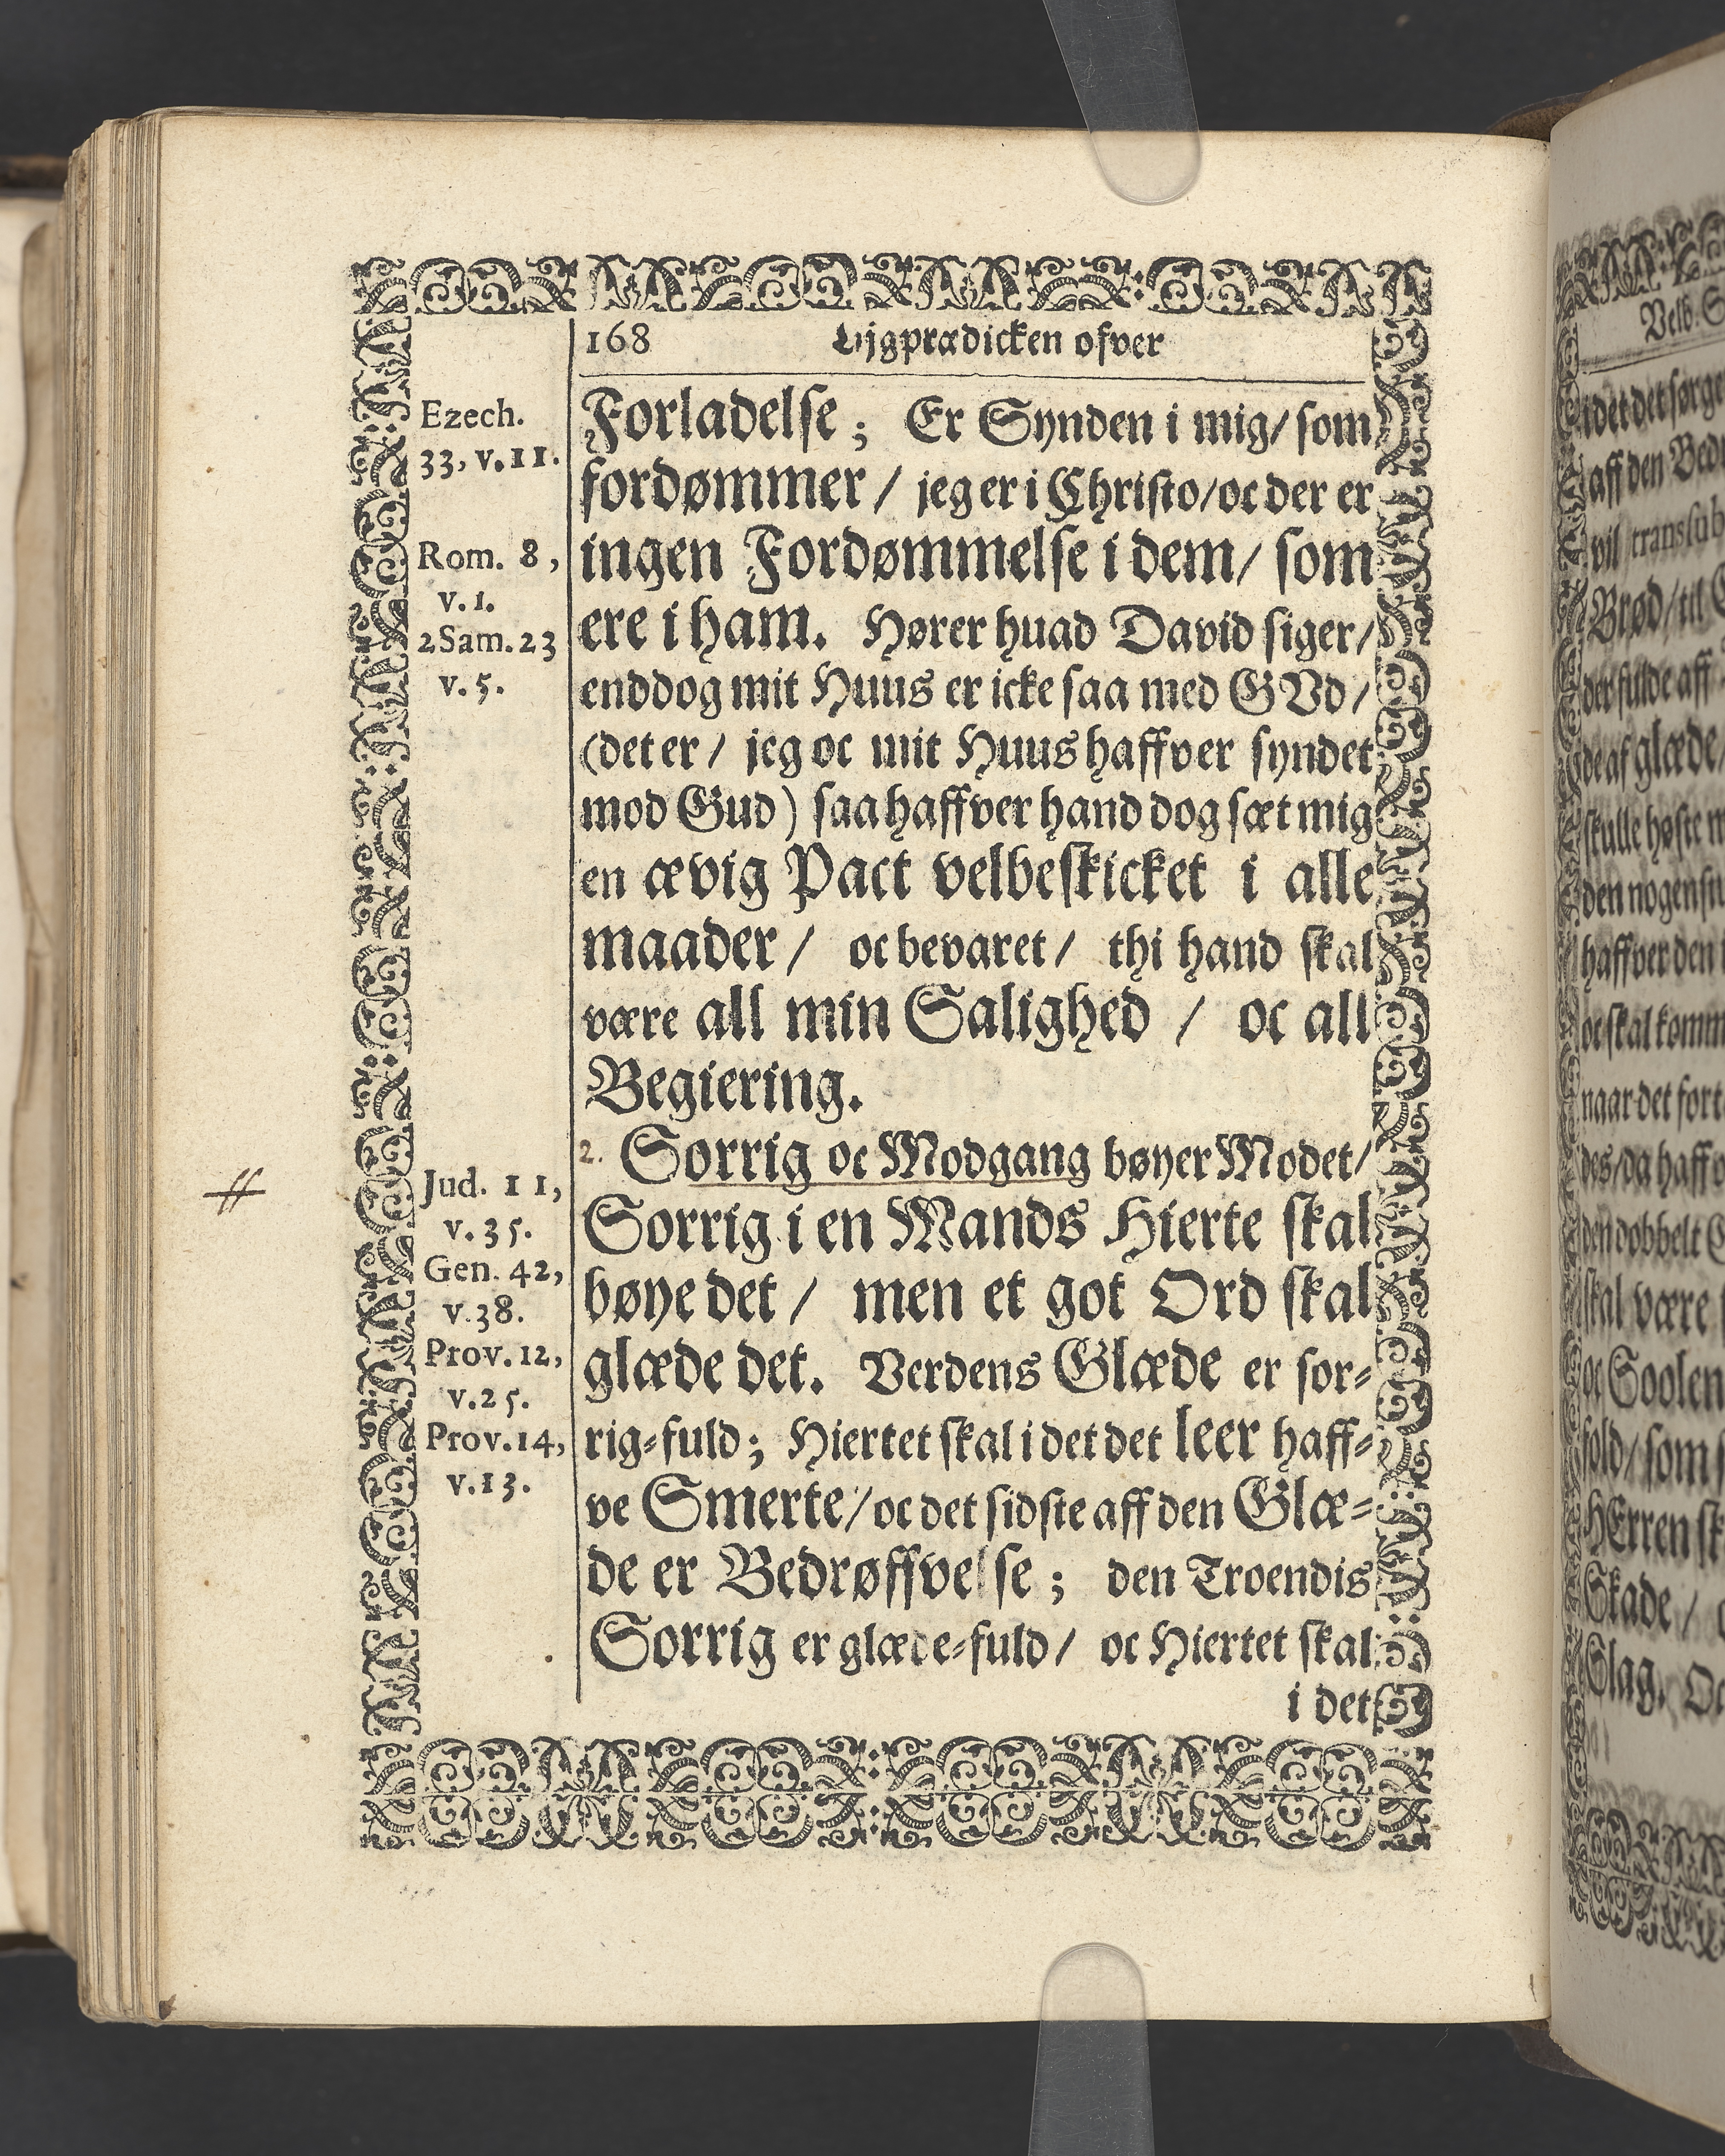 168 Lijgprædicken ofver
Ezech.
33, v. 11.
Rom. 8,
v. 1.
2 Sam. 23
v. 5.
Jud. 11,
v. 35.
Gen. 42,
v. 38.
Prov. 12,
v. 25.
Prov. 14,
v. 13.
Forladelse; Er Synden i mig/ som
fordømmer/ jeg er i Christo/ oc der er
ingen Fordømmelse i dem/ som
ere i ham. Hører huad David siger/
enddog mit Huus er icke saa med GVd/
(det er/ jeg oc mit Huus haffver syndet
mod Gud) saa haffver hand dog sæt mig
en ævig Pact velbeskicket i alle
maader/ oc bevaret/ thi hand skal
være all min Salighed/ oc all
Begiering.
2. Sorrig oc Modgang bøyer Modet/
Sorrig i en Mands Hierte skal
bøye det/ men et got Ord skal
glæde det. Verdens Glæde er sor-
rig-fuld; Hiertet skal i det det leer haff-
ve Smerte/ oc det sidste aff den Glæ-
de er Bedrøffvelse; den Troendis
Sorrig er glæde-fuld/ oc Hiertet skal
i det
Velb.
aff den
vil transsub
Brød/ til
der fulde aff
de af glæde/
skulle høste
haffver den
oc skal komm
naar det
den dobbelt
skal være
oc Soolen
fold/ som
HErren
Skade/
Slag.